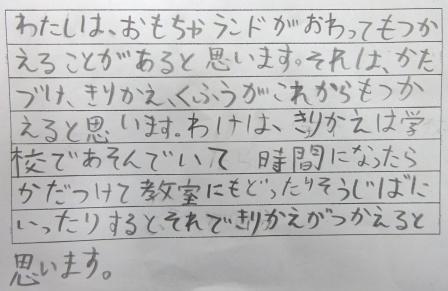 わたしは、おもちゃランドがおわってもつか
えることがあると思います。それは、かた
づけ、きりかえ、くふうがこれからもつか
えると思います。わけは、きりかえは学
校であそんでいて 時間になったら
かだつけて教室にもどったりそうじばに
いったりすると、それできりかえがつかえると
思います。